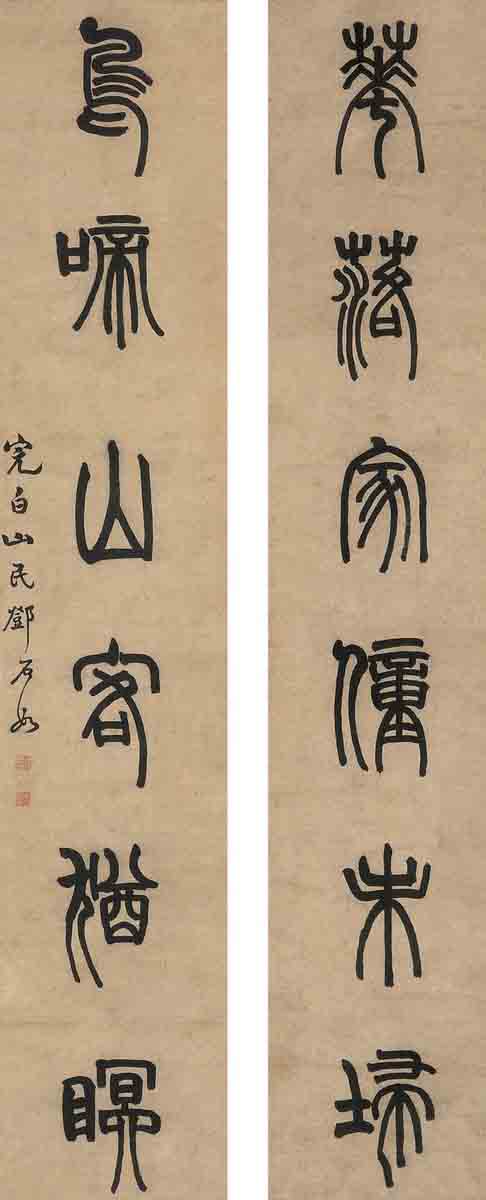 華落家僮未埽
鳥啼山客猶瞑
完白山民鄧石如